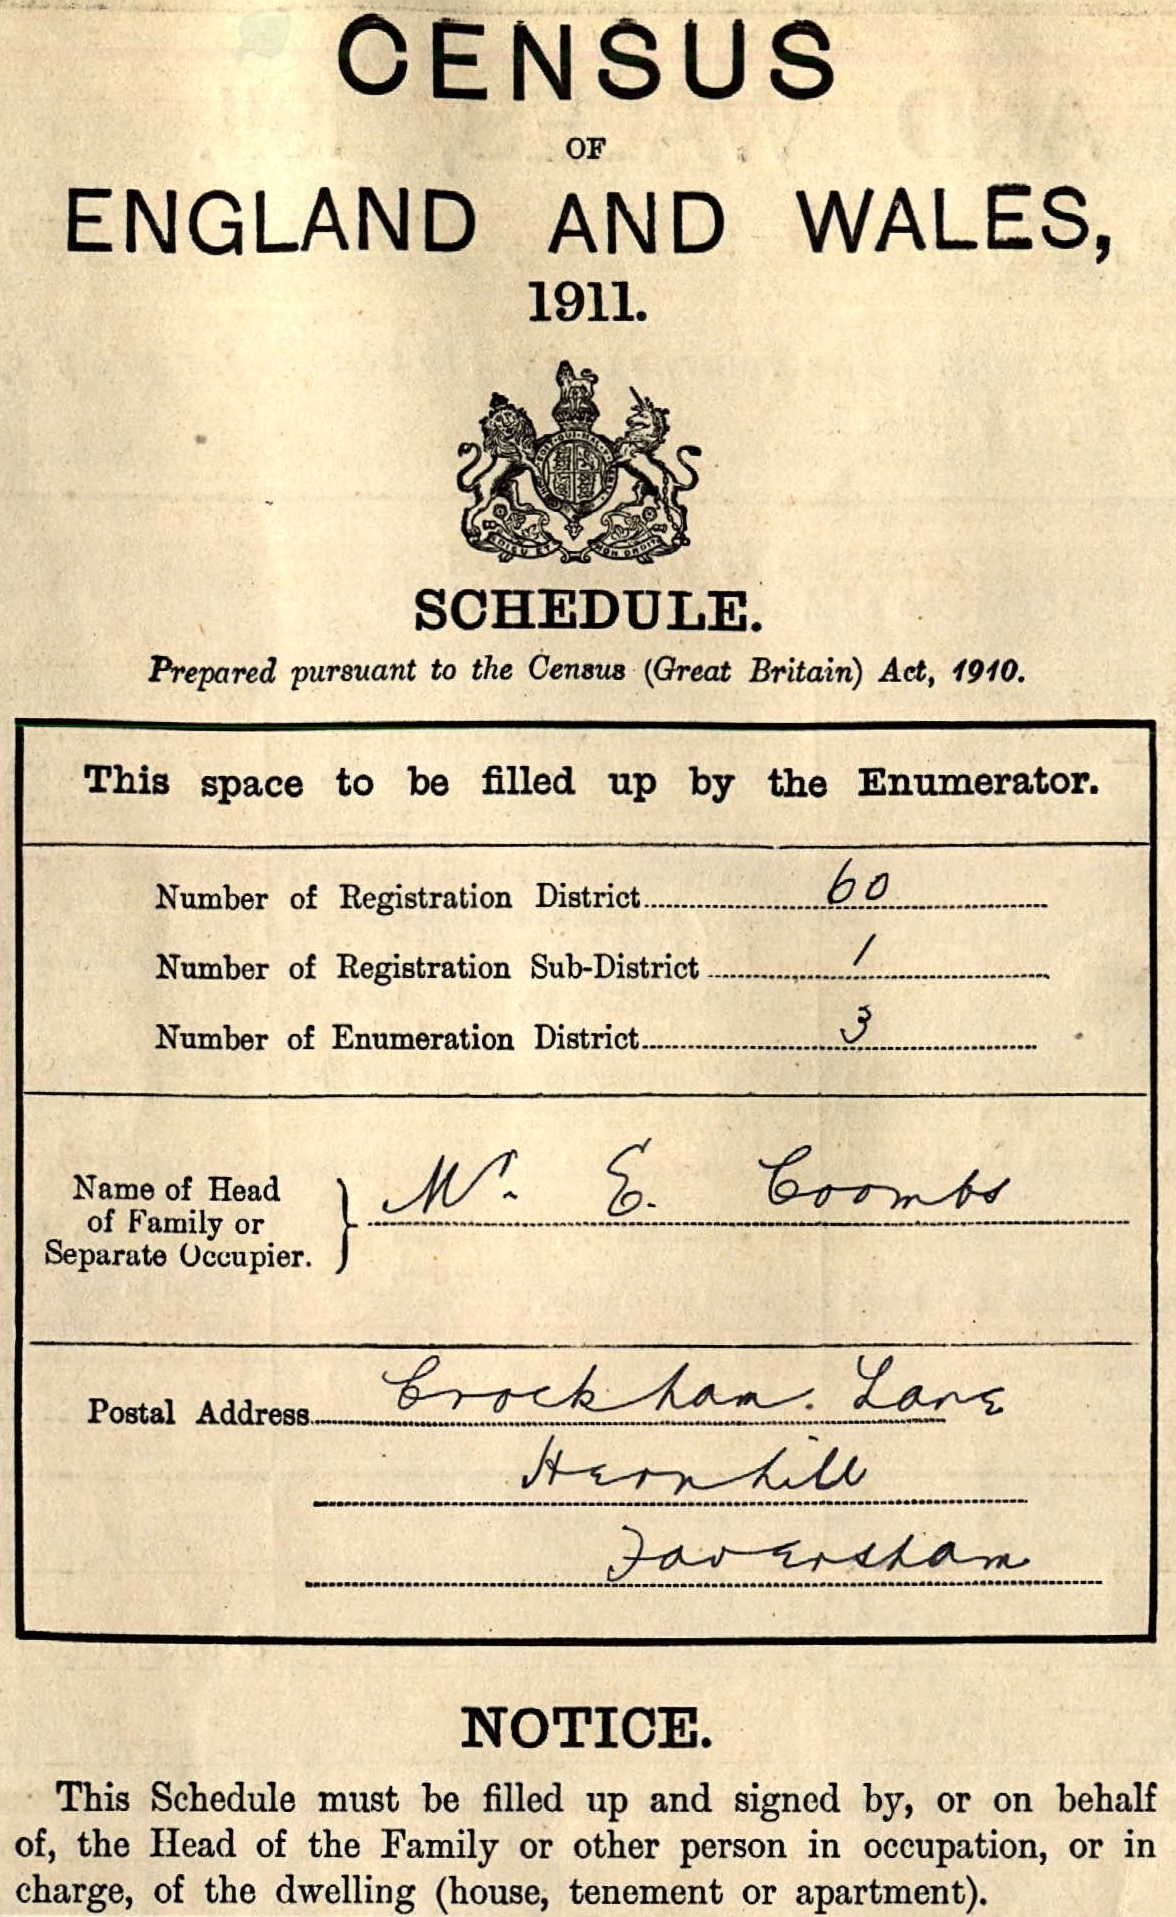 CENSUS
OF
ENGLAND AND WALES,
1911.
DIEU ET MON DROIT
SCHEDULE.
Prepared pursuant to the Census (Great Britain) Act, 1910.
This space to be filled up by the Enumerator.
Number of Registration District 60
Number of Registration Sub-District 1
Number of Enumeration District 3
Name of Head
of Family or
Separate Occupier. } Mr. E. Coombs
Postal Address Crockham. Lane
Hernhill
Faversham
NOTICE.
This Schedule must be filled up and signed by, or on behalf
of, the Head of the Family or other person in occupation, or in
charge, of the dwelling (house, tenement or apartment).